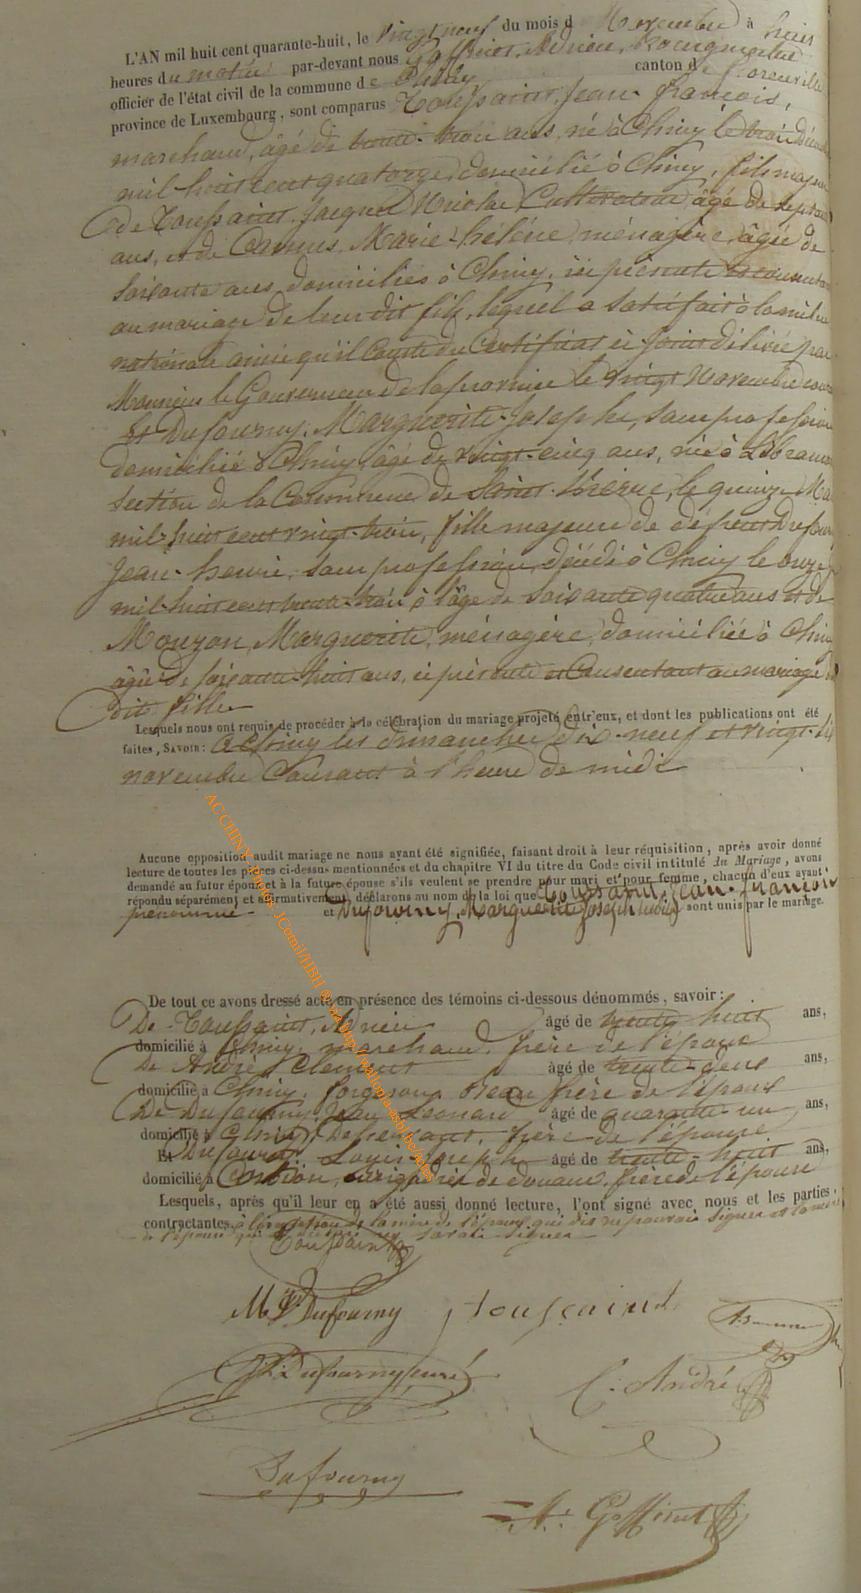 L'AN mil huit cent quarante-huit, le vingt neuf du mois de Novembre à huit
heures du matin par-devant nous Goffinet, Adrien, Bourgmestre
officier de l'état civil de la commune de Chiny canton de Florenville
province de Luxembourg, sont comparus Toussaint, Jean-françois,
marchand, âgé de trente-trois ans, né à Chiny le trois décem
mil huit cent quatorze, domicilié à Chiny, fils majeur
de Toussaint, Jacques Nicolas, Cultivateur âgé de septante
ans, et de Camus, Marie-hélène, ménagère, âgée de
soixante ans, domiciliés à Chiny, ici présents et consentant
au mariage de leur dit fils, lequel a satisfait à la milice
nationale ainsi qu'il Conste du Certificat ci-joint délivré par
Monsieur le Gouverneur de la province le vingt Novembre courant
Et Dufourny, Marguerite-Josephe, sans profession
domiciliée à Chiny, âgé de vingt-cinq ans, née à Libramon
section de la Commune de Saint-Pierre, le quinze Ma
mil-huit cent vingt-trois, fille majeure de défunt Dufour
Jean-henri, sans profession, décédé à Chiny le onze
mil-huit cent trente-trois à l'âge de soixante quatre ans et de
Mouzon, Marguerite, ménagère, domiciliée à Chiny
âgée de soixante-huit ans, ci présente et Consentant au mariage de
dite fille
Lesquels nous ont requis de procéder à la célébration du mariage projeté entr'eux, et dont les publications ont été
faites, SAVOIR : à Chiny les dimanches dix-neuf et vingt-six
novembre Courant à l'heure de midi
Aucune opposition audit mariage ne nous ayant été signifiée, faisant droit à leur réquisition, après avoir donné
lecture de toutes les pièces ci-dessus mentionnées et du chapitre VI du titre du Code civil intitulé du Mariage, avons
demandé au futur époux et à la future épouse s'ils veulent se prendre pour mari et pour femme, chacun d'eux ayant
répondu séparément et affirmativement, déclarons au nom de la loi que Toussaint, Jean-françois
prénommé et Dufourny, Marguerite Josephe sont unis par le mariage.
De tout ce avons dressé acte en présence des témoins ci-dessous dénommés, savoir :
De Toussaint, Adrien âgé de trente-huit ans,
domicilié à Chiny, marchand, frère de l'époux
De André, Clément âgé de trente-deux ans,
domicilié à Chiny, forgeron, Beau frère de l'époux
De Dufourny, Jean Léonard âgé de quarante-un ans,
domicilié à Chiny, Desservant, frère de l'épouse
Et Dufourny, Louis-Joseph âgé de trente-huit ans,
domicilié à brigadier de douane, frère de l'épouse
Lesquels, après qu'il leur en a été aussi donné lecture, l'ont signé avec nous et les parties
contractantes, à l'exception de la mère de l'époux qui dit ne pouvoir signer et la mère
de l'épouse qui savoir signer
Toussaint
M J Dufourny toussaint
Dufourny curé C. André
Dufourny
A. Goffinet